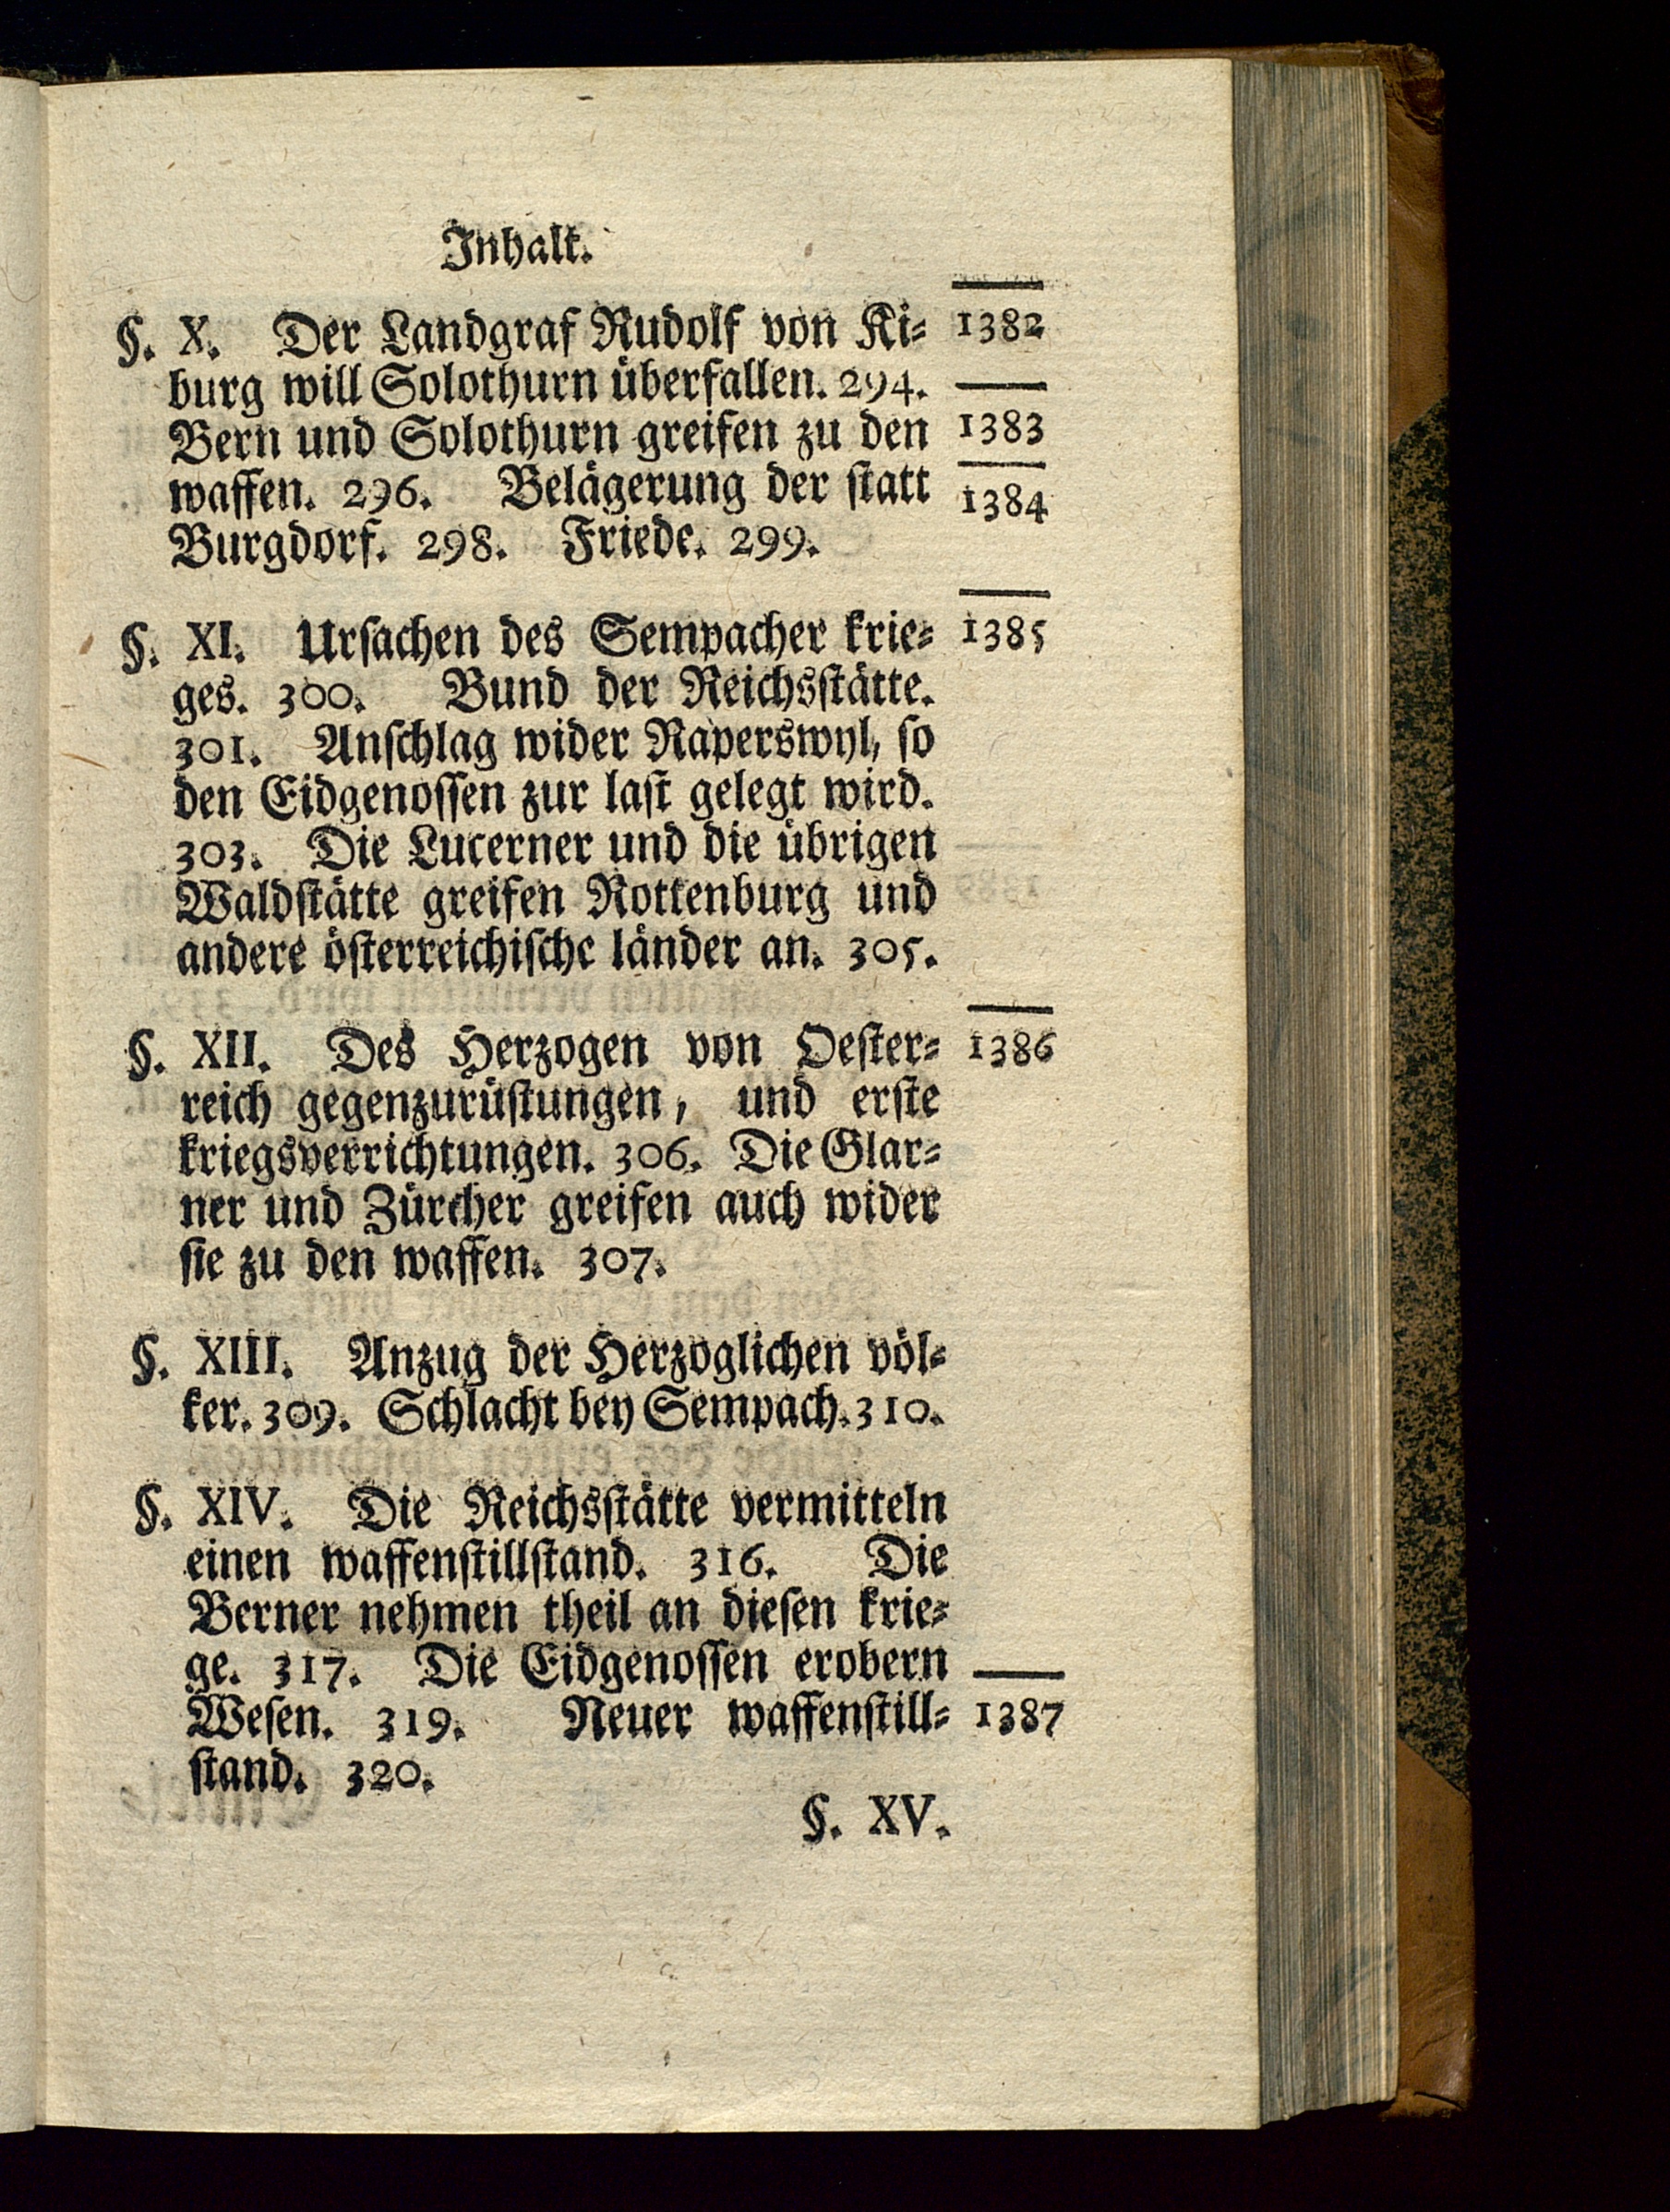 Inhalt.
§. X. Der Landgraf Rudolf von Ki⸗ 1382
burg will Solothurn überfallen. 294.
Bern und Solothurn greifen zu den 1383
waffen. 296. Belägerung der ſtatt 1384
Burgdorf. 298. Friede. 299.
§. XI. Urſachen des Sempacher krie⸗ 1385
ges. 300. Bund der Reichsſtätte.
301. Anſchlag wider Raperswyl, ſo
den Eidgenoſſen zur laſt gelegt wird.
303. Die Lucerner und die übrigen
Waldſtätte greifen Rottenburg und
andere öſterreichiſche länder an. 305.
§. XII. Des Herzogen von Oeſter⸗ 1386
reich gegenzurüſtungen, und erſte
kriegsverrichtungen. 306. Die Glar⸗
ner und Zürcher greifen auch wider
ſie zu den waffen. 307.
§. XIII. Anzug der Herzoglichen völ⸗
ker. 309. Schlacht bey Sempach. 310.
§. XIV. Die Reichsſtätte vermitteln
einen waffenſtillſtand. 316. Die
Berner nehmen theil an dieſen krie⸗
ge. 317. Die Eidgenoſſen erobern
Weſen. 319. Neuer waffenſtill⸗ 1387
ſtand. 320.
§. XV.